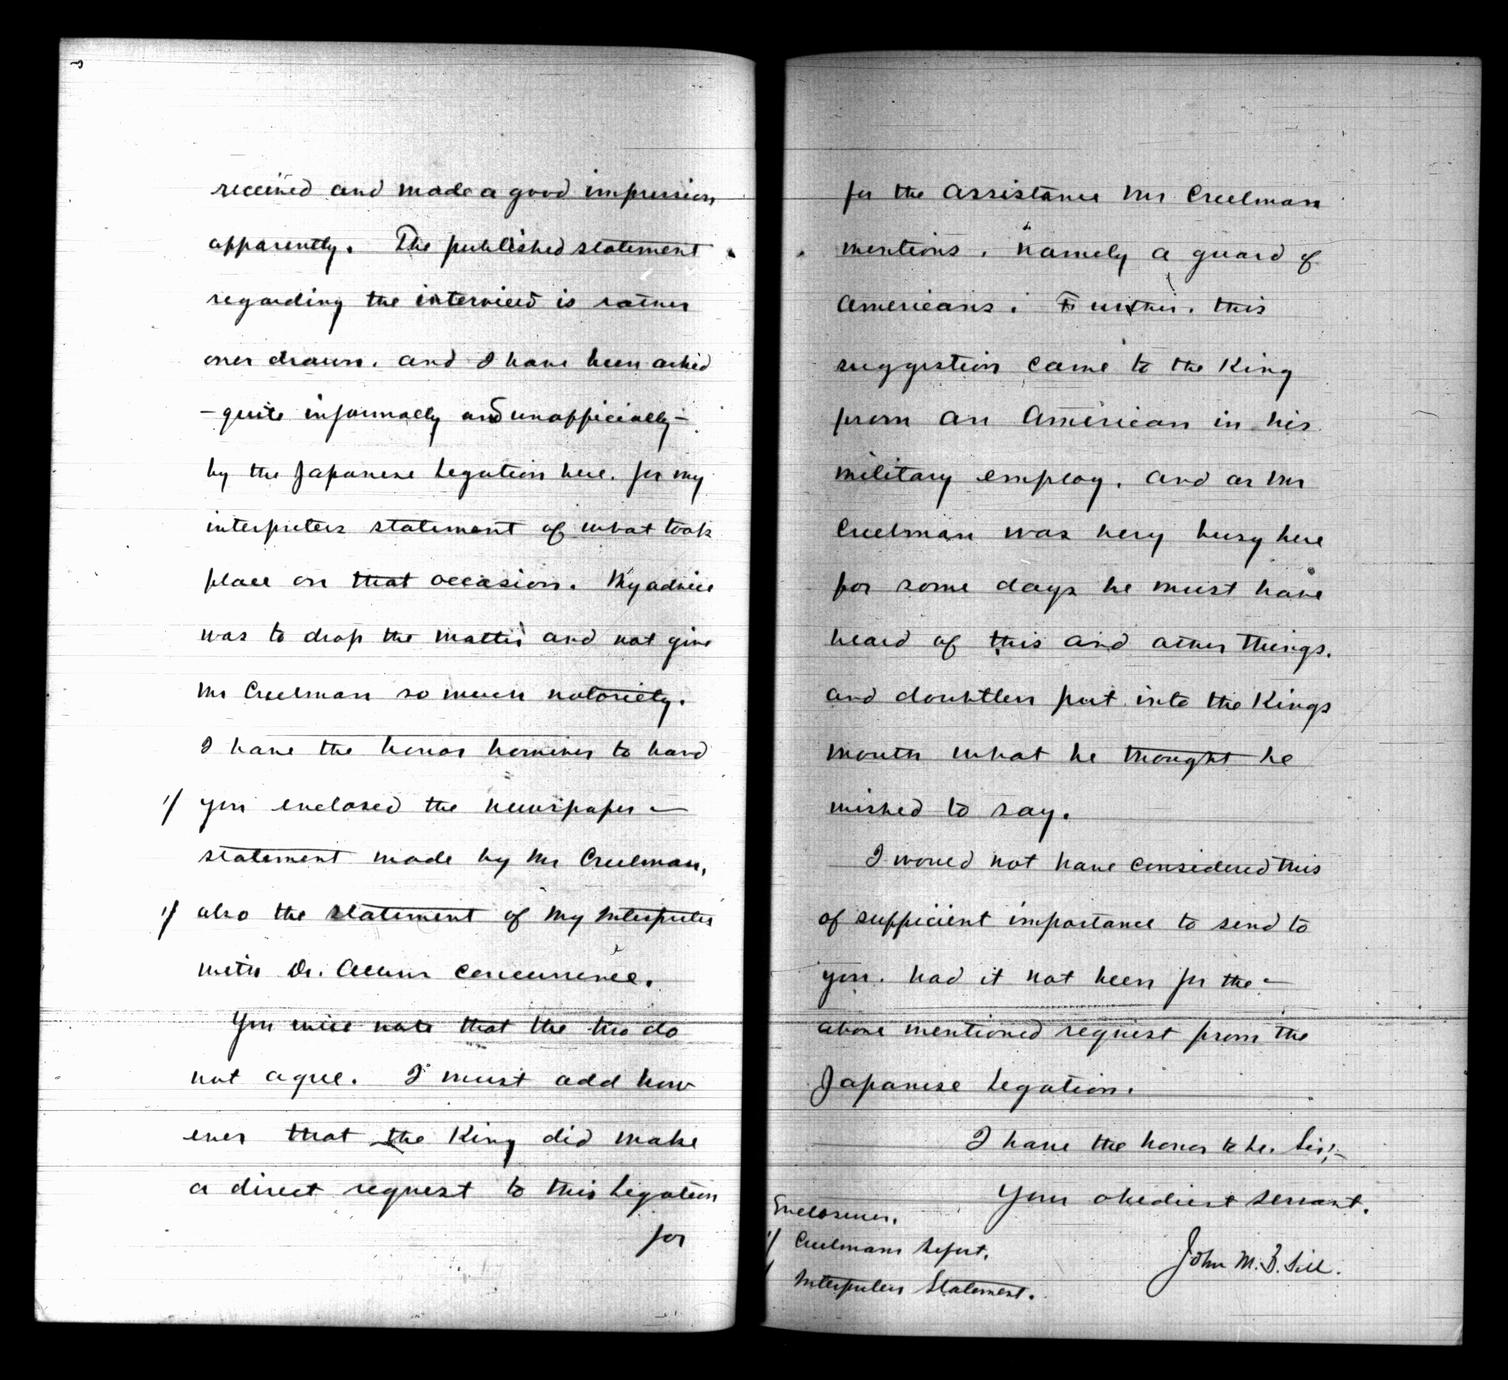 received and made a good impression
apparently. The published statement
regarding the interview is rather
over drawn, and I have been asked
- quite informally and unofficially -
by the Japanese Legation here, for my
interpreters statement of what took
place on that occasion. My advice
was to drop the matter and not give
Mr Creelman so much notoriety.
I have the honor however to hand
1/ you enclosed the newspaper -
statement made by Mr Creelman,
1/ also the statement of my Interpreter
with Dr. Allens concurrence.
You will note that the two do
not agree. I must add how
ever that the King did make
a direct request to this Legation
for
for the assistance Mr Creelman
mentions, namely a guard of
Americans. Further, this
suggestion came to the King
from an American in his
military employ, and as Mr
Creelman was very busy here
for some days he must have
heard of this and other things,
and doubtless put into the Kings
mouth what he thought he
wished to say.
I would not have considered this
of sufficient importance to send to
you, had it not been for the -
above mentioned request from the
Japanese Legation.
I have the honor to be, Sir,-
Your obedient servant.
John M. B. Sill.
Enclosures.
1/ Creelmans Report.
/ Interpreters Statement.